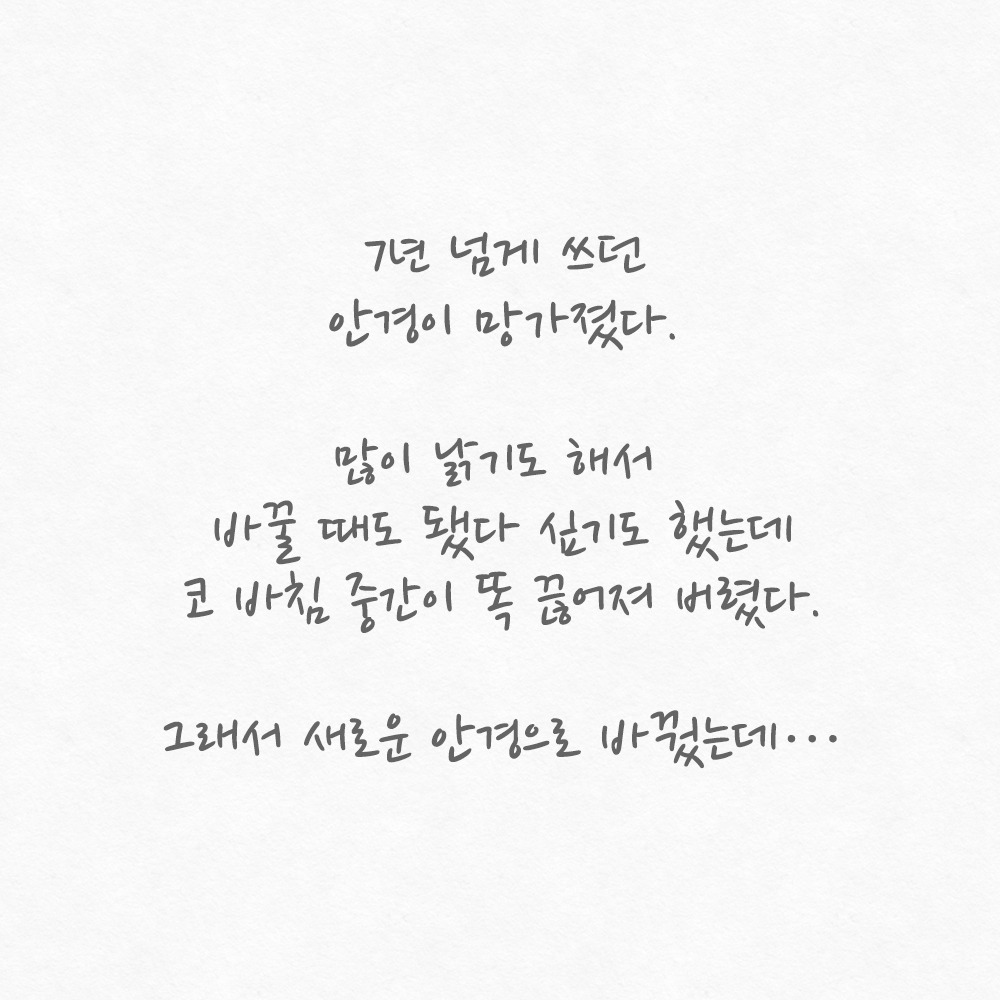 7년 넘게 쓰던
안경이 망가졌다.
많이 낡기도 해서
바꿀 때도 됐다 싶기도 했는데
코 바침 중간이 똑 끊어져 버렸다.
그래서 새로운 안경으로 바꿨는데...